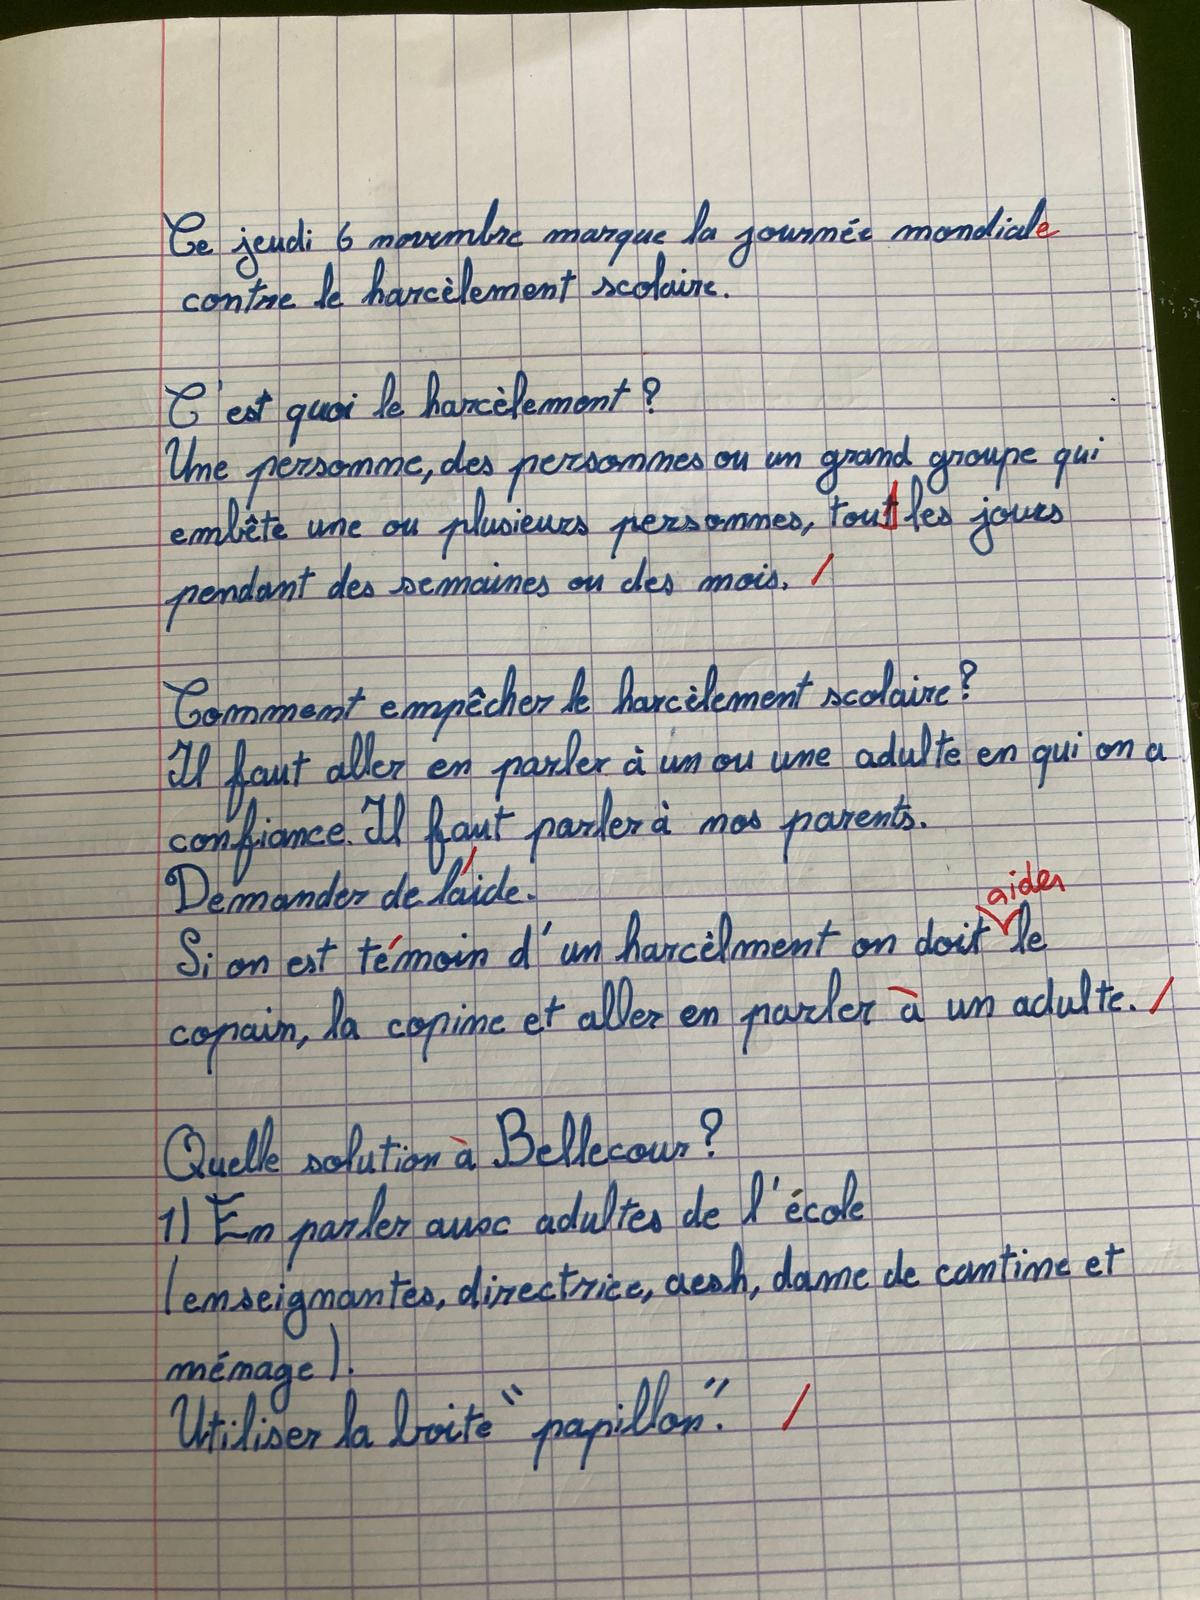 Ce jeudi 6 novembre marque la journée mondiale
contre le harcèlement scolaire.
C'est quoi le harcèlement ?
Une personne, des personnes ou un grand groupe qui
embête une ou plusieurs personnes, tout les jours
pendant des semaines ou des mois. /
Comment empêcher le harcèlement scolaire ?
Il faut aller en parler à un ou une adulte en qui on a
confiance. Il faut parler à nos parents.
Demander de l'aide.
aider
Si on est témoin d'un harcèlment on doit le
copain, la copine et aller en parler à un adulte. /
Quelle solution à Bellecour ?
1) En parler avec adultes de l'école
(enseignantes, directrice, aesh, dame de cantine et
ménage).
Utiliser la boite "papillon". /